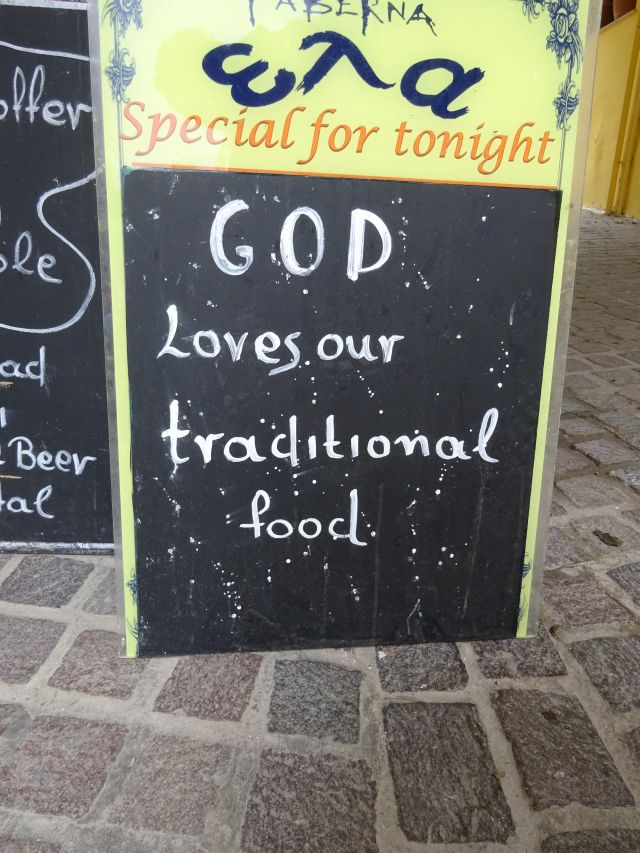 TABERNA
ελα
Special for tonight
GOD
Loves our
traditional
food
offer
ad
Beer
tal